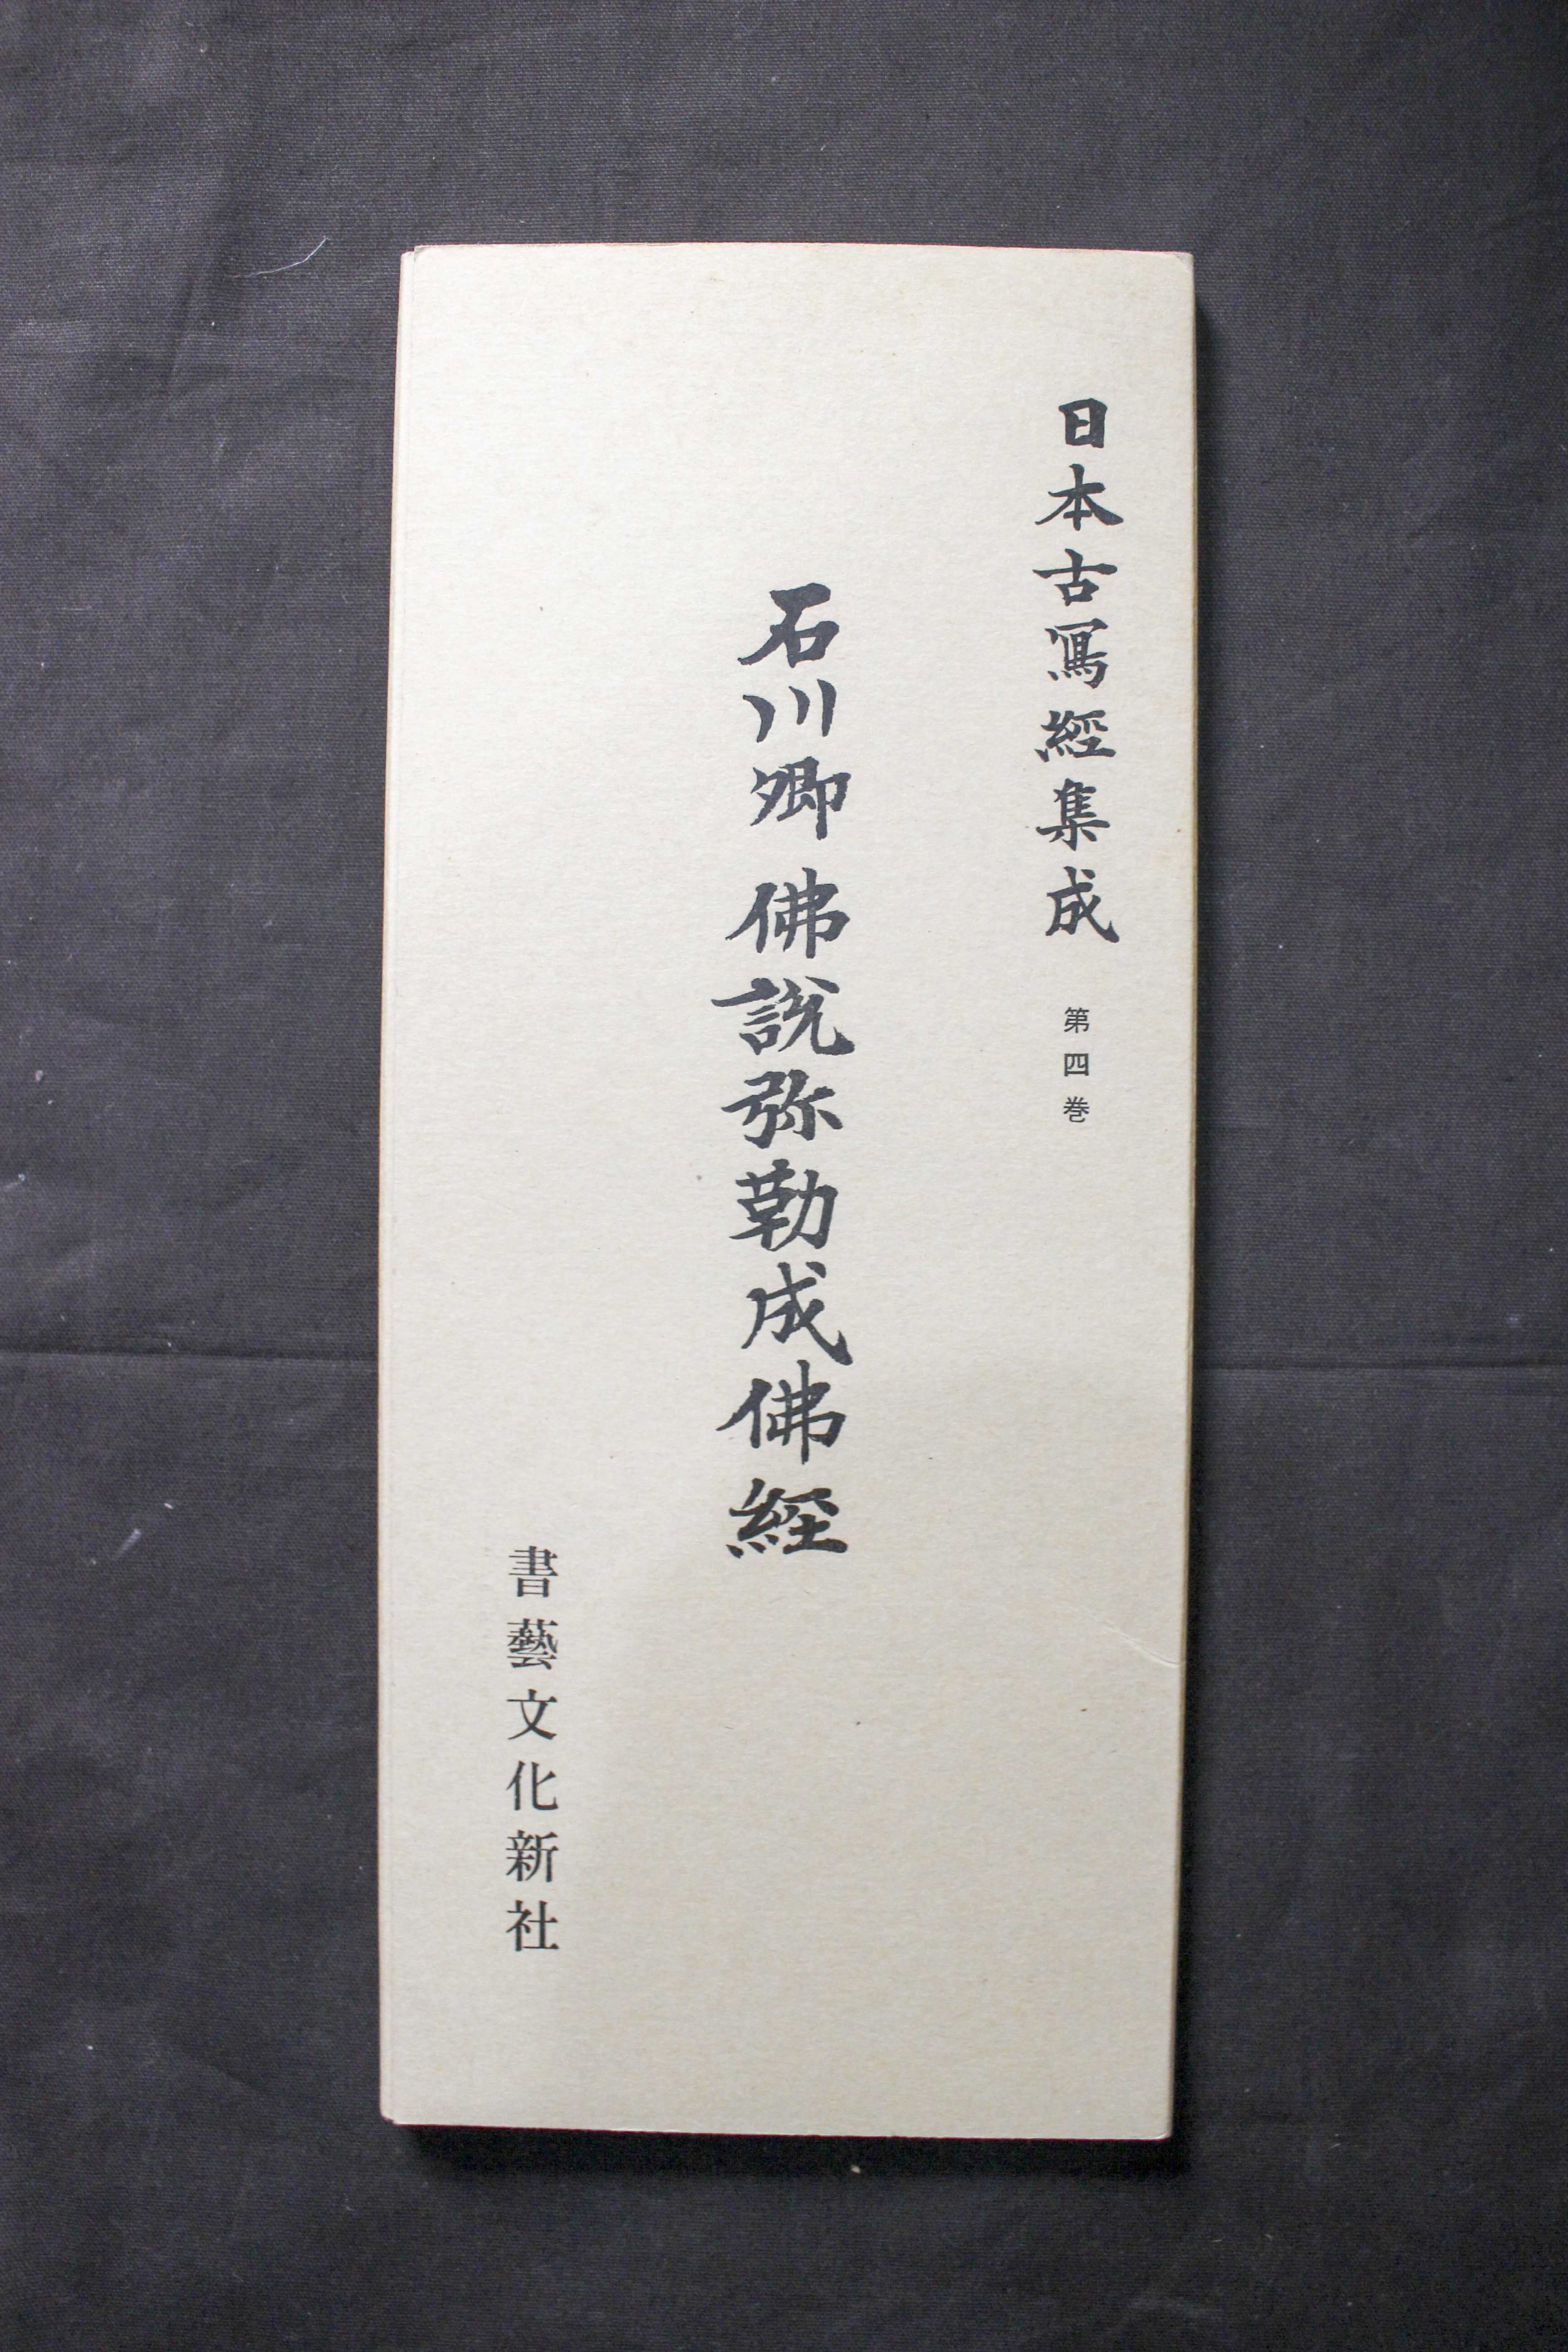 日本古寫經集成 第四巻
石川卿 佛說弥勒成佛經
書藝文化新社